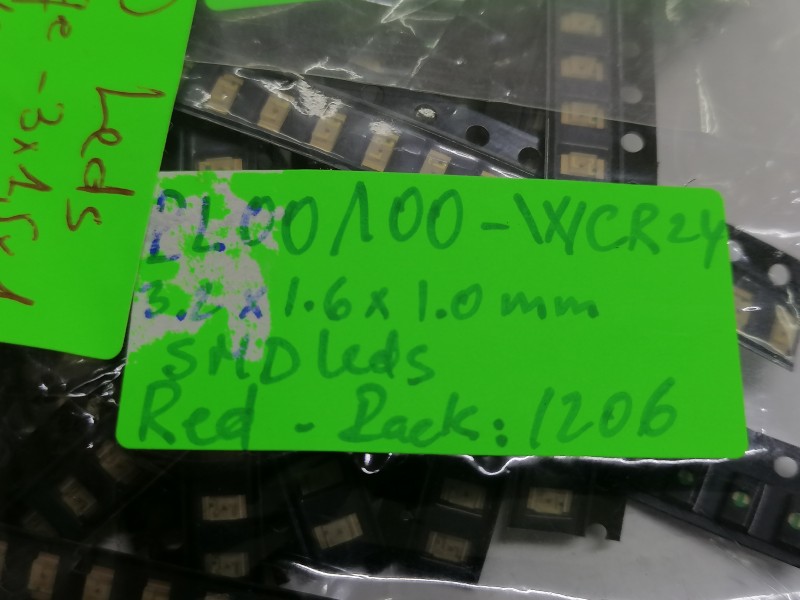 Leds
LL00/100-WCR24
3.2 x 1.6 x 1.0 mm
SMD Leds
Red - Pack: 1206